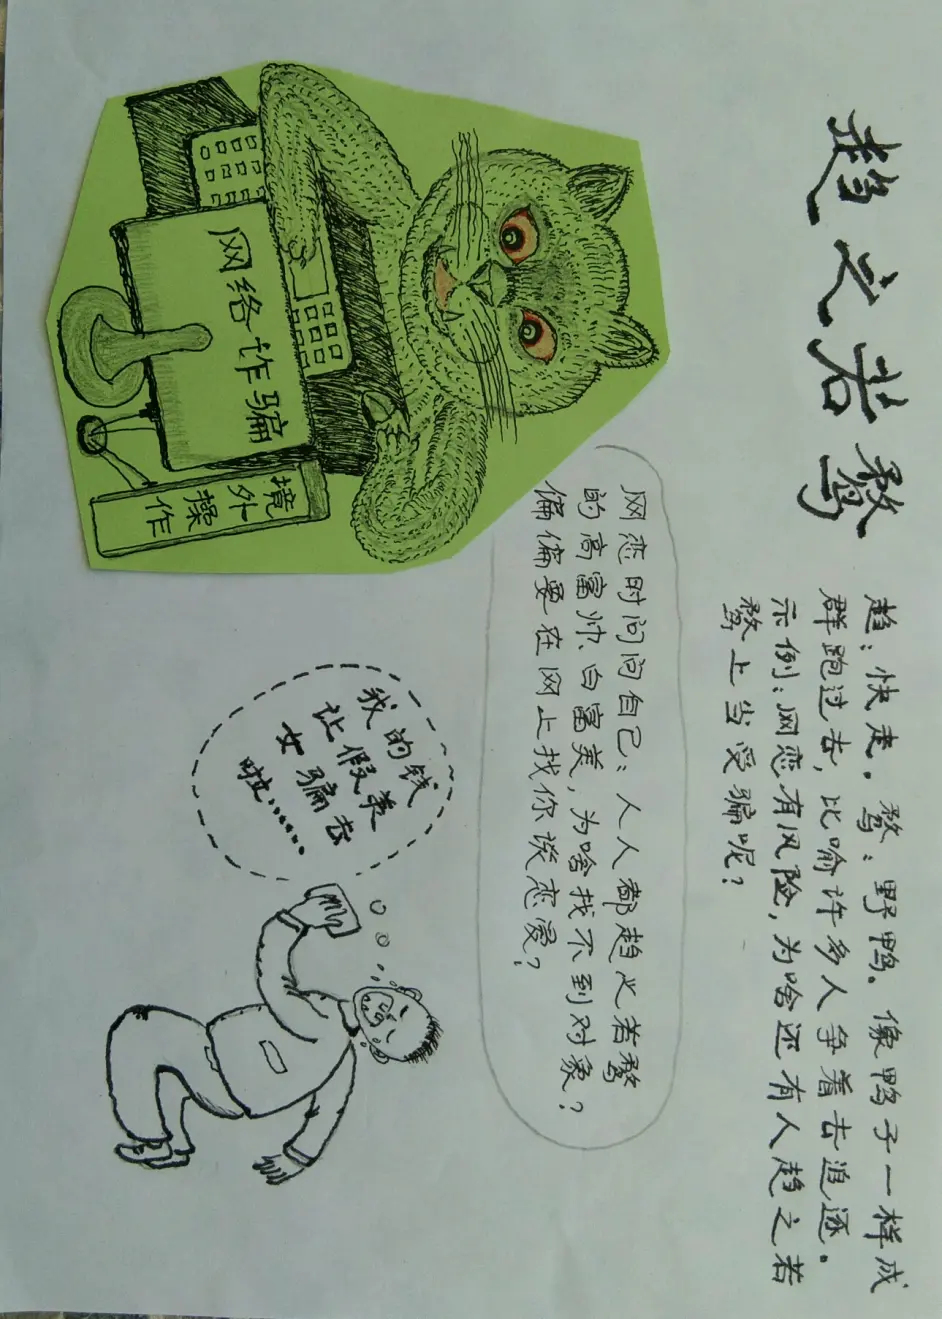 趋之若鹜
趋：快走。鹜：野鸭。像鸭子一样成
群跑过去，比喻许多人争着去追逐。
示例：网恋有风险，为啥还有人趋之若
鹜上当受骗呢？
网恋时问问自己：人人都趋之若鹜
的高富帅、白富美，为啥找不到对象？
偏偏要在网上找你谈恋爱？
网络诈骗
境外
操作
我的钱
让假美
女骗去
啦……